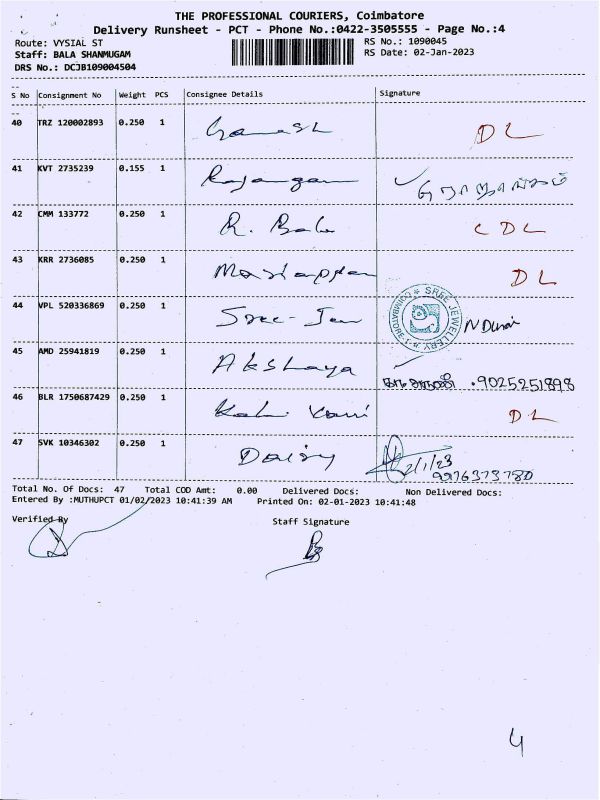 THE PROFESSIONAL COURIERS, Coimbatore
Delivery Runsheet - PCT - Phone No.:0422-3505555 - Page No.:4
Route: VYSIAL ST
RS No.: 1090045
Staff: BALA SHANMUGAM
RS Date: 02-Jan-2023
DRS No.: DCJB109004504
S No Consignment No Weight PCS Consignee Details Signature
40 TRZ 120002893 0.250 1 Ganesh DL
41 KVT 2735239 0.155 1 Rajangam
42 CMM 133772 0.250 1 R. Bala CDL
43 KRR 2736085 0.250 1 DL
44 VPL 520336869 0.250 1 Sree-Jew N Durai
SREE JEWELLERY
COIMBATORE-1
45 AMD 25941819 0.250 1 Akshaya 9025251898
46 BLR 1750687429 0.250 1 Kalai Vani DL
47 SVK 10346302 0.250 1 Daisy 2/1/23
9976373780
Total No. Of Docs: 47 Total COD Amt: 0.00 Delivered Docs: Non Delivered Docs:
Entered By :MUTHUPCT 01/02/2023 10:41:39 AM Printed On: 02-01-2023 10:41:48
Verified By
Staff Signature
4